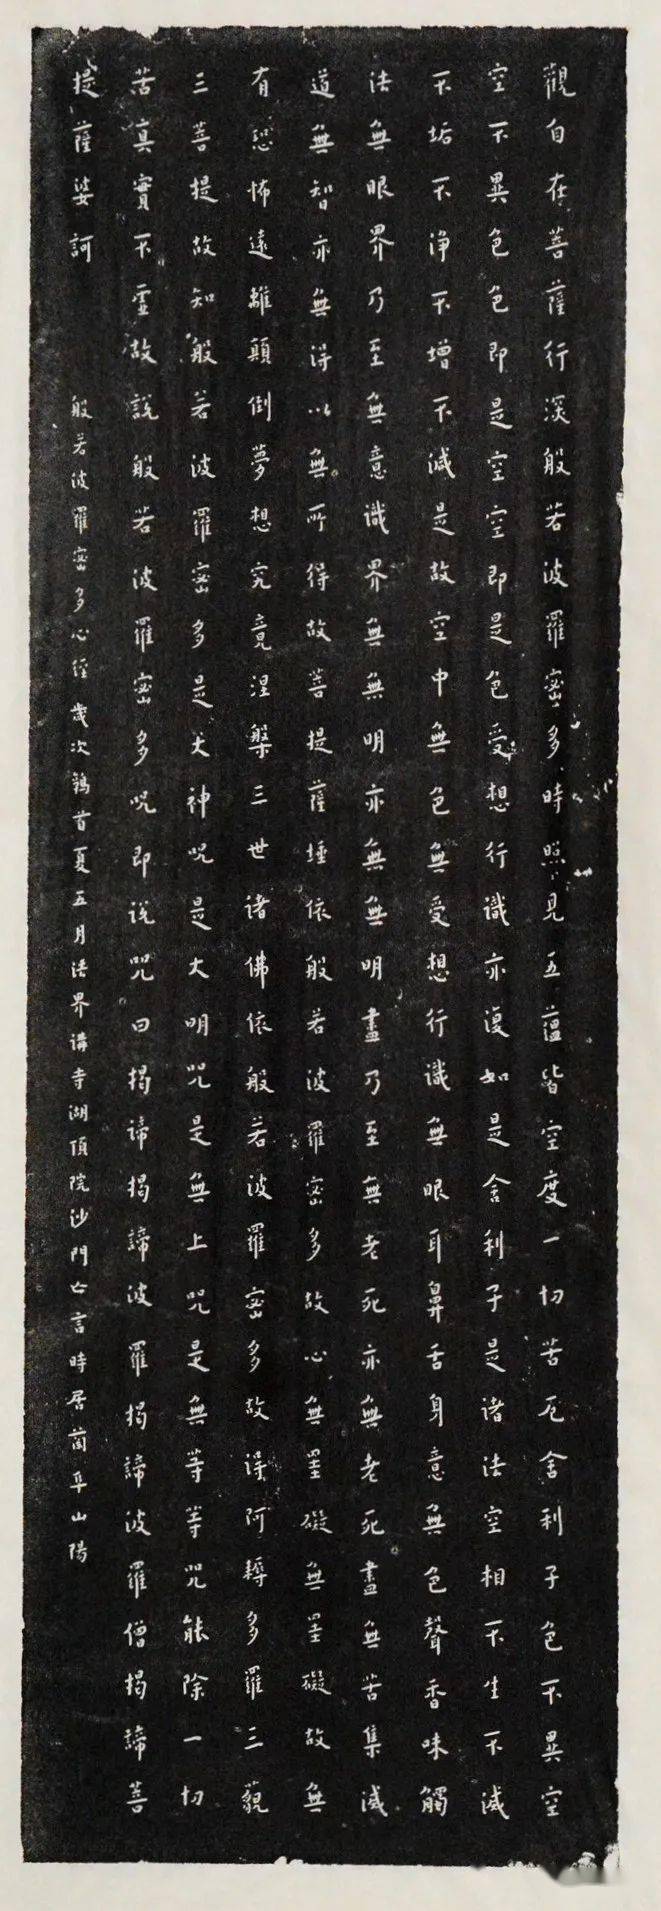 觀自在菩薩行深般若波羅密多時照見五蘊皆空度一切苦厄舍利子色不異空
空不異色色即是空空即是色受想行識亦復如是舍利子是諸法空相不生不滅
不垢不淨不增不減是故空中無色無受想行識無眼耳鼻舌身意無色聲香味觸
法無眼界乃至無意識界無無明亦無無明盡乃至無老死亦無老死盡無苦集滅
道無智亦無得以無所得故菩提薩埵依般若波羅密多故心無罣礙無罣礙故無
有恐怖遠離顛倒夢想究竟涅槃三世諸佛依般若波羅密多故得阿耨多羅三藐
三菩提故知般若波羅密多是大神咒是大明咒是無上咒是無等等咒能除一切
苦真實不虛故說般若波羅密多咒即説咒曰揭諦揭諦波羅揭諦波羅僧揭諦菩
提薩婆訶
般若波羅密多心經歲次鶉首夏五月法界講寺湖頂院沙門亡言時居蘭阜山陽